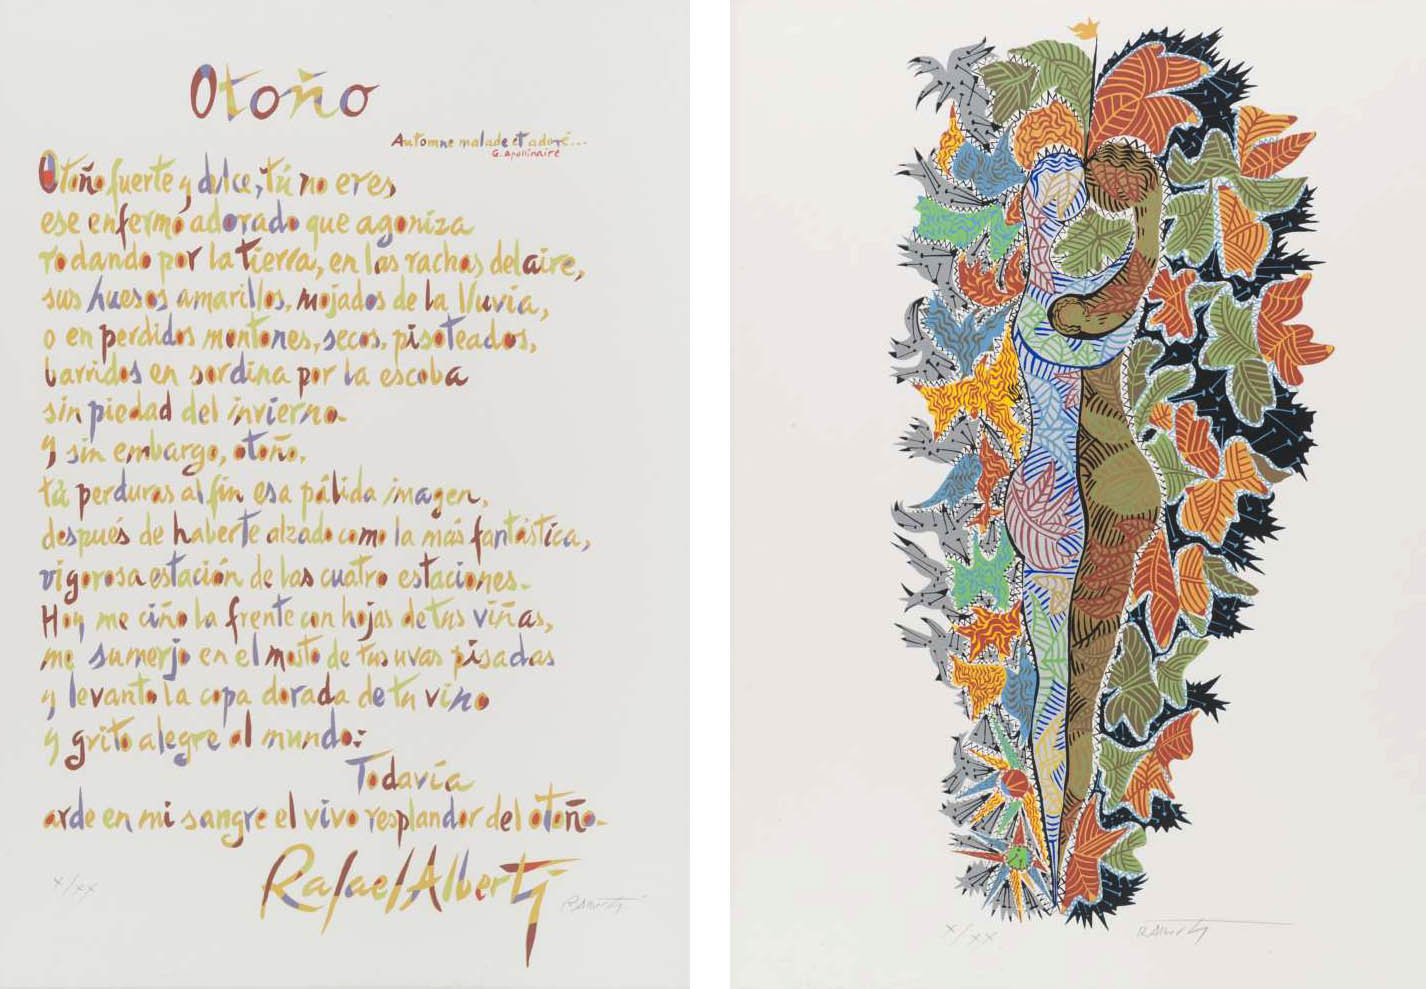 Otoño
Automne malade et adoré...
G. Apollinaire
Otoño fuerte y dulce, tú no eres
ese enfermo adorado que agoniza
rodando por la tierra, en las rachas del aire,
sus huesos amarillos, mojados de la lluvia,
o en perdidos montones, secos, pisoteados,
barridos en sordina por la escoba
sin piedad del invierno.
Y sin embargo, otoño,
tú perduras al fin esa pálida imagen,
después de haberte alzado como la más fantástica,
vigorosa estación de las cuatro estaciones.
Hoy me ciño la frente con hojas de tus viñas,
me sumerjo en el mosto de tus uvas pisadas
y levanto la copa dorada de tu vino
y grito alegre al mundo:
Todavía
arde en mi sangre el vivo resplandor del otoño.
Rafael Alberti
X/XX
R. Alberti
X/XX
R. Alberti